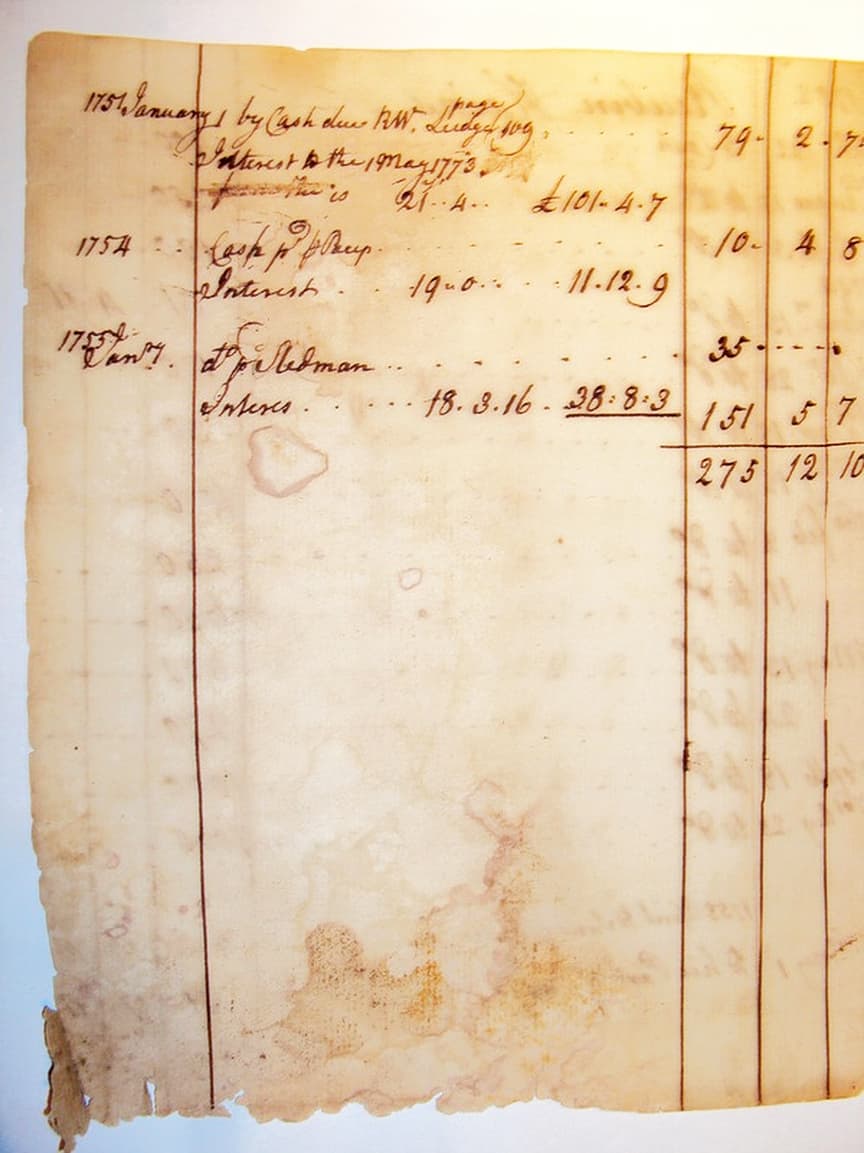 1751 January 1 by Cash due RW. Ledger page 109 . . . . . 79 - 2 - 7
Interest to the 1 May 1773
is 21 . . 4 . . £101 - 4 - 7
1754 . . Cash p . . . . . 10 - 4 8
Interest . . 19 - 0 . . . 11 . 12 . 9
1755 Jany 7 . do p Redman . . . . . 35 - - - -
Interes . . . . 18 . 3 . 16 . 38 : 8 : 3 151 5 7
275 12 10